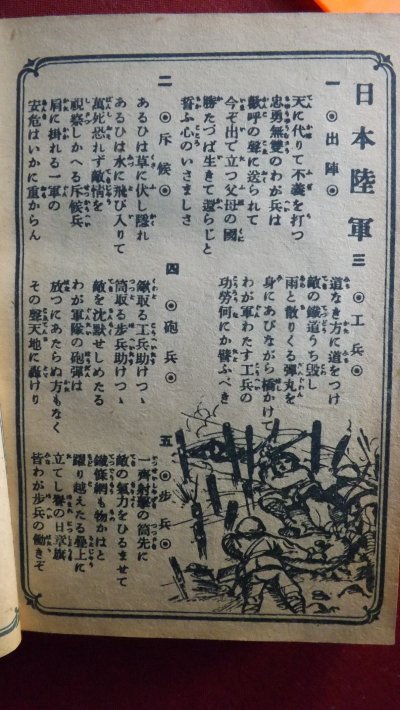 日本陸軍
一 ◎出陣◎
天に代りて不義を打つ
忠勇無雙のわが兵は
歡呼の聲に送られて
今ぞ出で立つ父母の國
勝たづば生きて還らじと
誓ふ心のいさましさ
二 ◎斥候◎
あるひは草に伏し隱れ
あるひは水に飛び入りて
萬死恐れず敵情を
視察しかへる斥候兵
肩に掛れる一軍の
安危はいかに重からん
三 ◎工兵◎
道なき方に道をつけ
敵の鐵道うち毀し
雨と散りくる彈丸を
身にあびながら橋かけて
わが軍わたす工兵の
功勞何にか譬ふべき
四 ◎砲兵◎
鍬取る工兵助けつゝ
筒取る步兵助けつゝ
敵を沈默せしめたる
わが軍隊の砲彈は
放つにあたらぬ方もなく
その聲天地に轟けり
五 ◎步兵◎
一齊射擊の筒先に
敵の氣力をひるませて
鐵條網も物かはと
躍り越えたる壘上に
立てし譽の日章旗
皆わが步兵の働きぞ